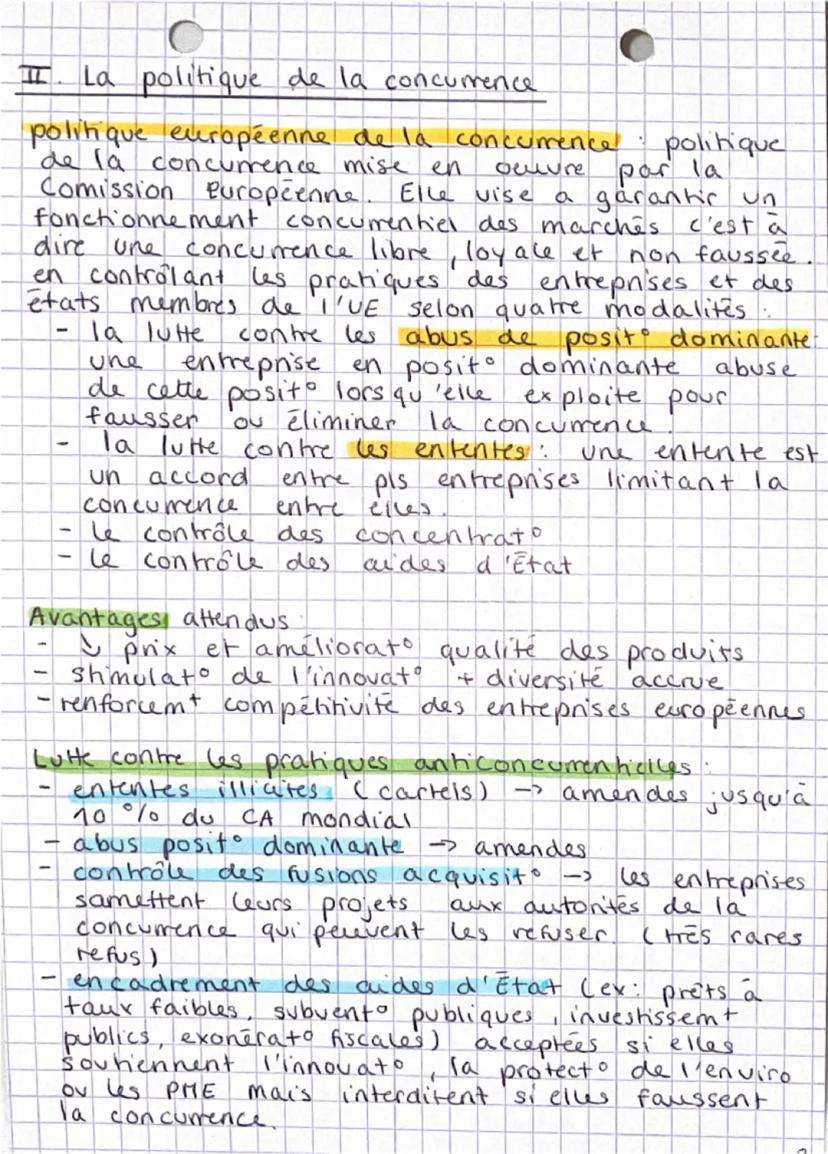 II. La politique de la concurrence
politique européenne de la concurrence : politique
de la concurrence mise en oeuvre par la
Comission Européenne. Elle vise a garantir un
fonctionnement concurrentiel des marchés c'est à
dire une concurrence libre, loyale et non faussée.
en contrôlant les pratiques des entreprises et des
états membres de l'UE selon quatre modalités :
- la lutte contre les abus de posit° dominante:
une entreprise en posit° dominante abuse
de cette posit° lorsqu'elle exploite pour
fausser ou éliminer la concurrence.
- la lutte contre les ententes : une entente est
un accord entre pls entreprises limitant la
concurrence entre elles.
- le contrôle des concentrat°
- le contrôle des aides d'État
Avantages attendus :
- ↘ prix et améliorat° qualité des produits
- stimulat° de l'innovat° + diversité accrue
- renforcemt compétitivité des entreprises européennes
Lutte contre les pratiques anticoncurrentielles :
- ententes illicites (cartels) -> amendes jusqu'à
10 % du CA mondial
- abus posit° dominante -> amendes
- contrôle des fusions acquisit° -> les entreprises
samettent leurs projets aux autorités de la
concurrence qui peuvent les refuser. (très rares
refus)
- encadrement des aides d'État (ex: prêts à
taux faibles, subvent° publiques, investissemt
publics, exonérat° fiscales) acceptées si elles
soutiennent l'innovat°, la protect° de l'enviro
ou les PME mais interditent si elles faussent
la concurrence.